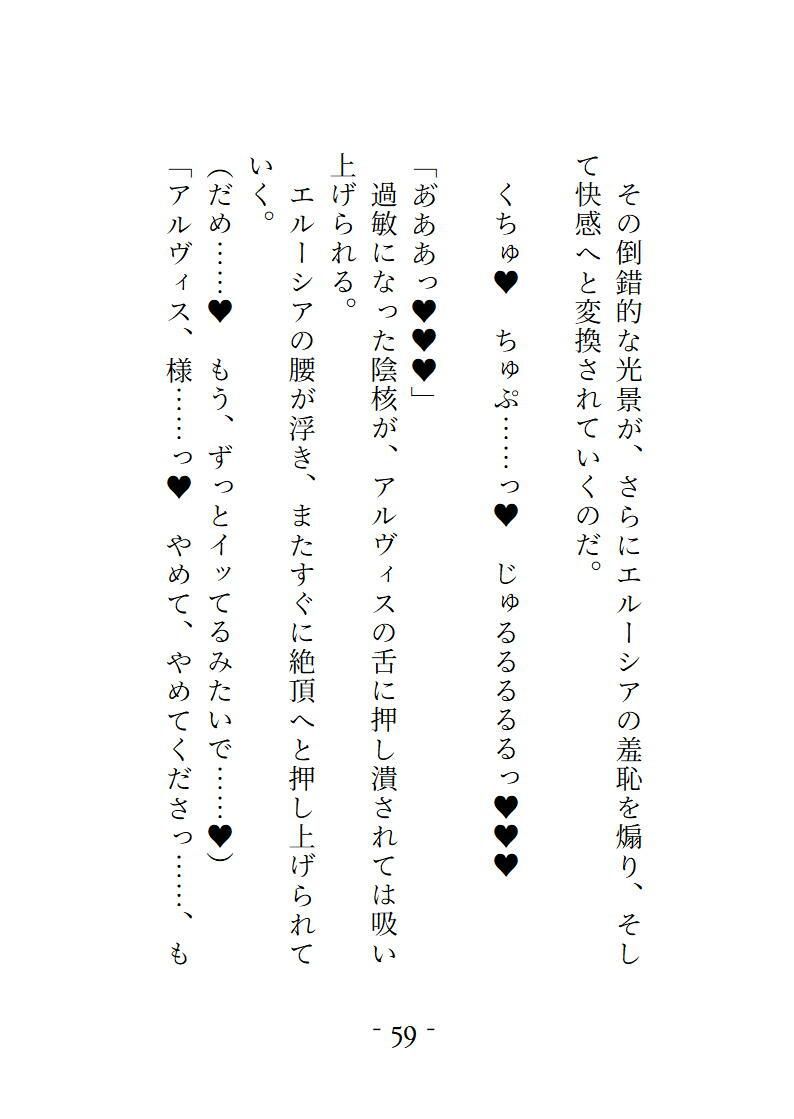 その倒錯的な光景が、さらにエルーシアの羞恥を煽り、そし
て快感へと変換されていくのだ。
くちゅ♥　ちゅぷ……っ♥　じゅるるるるるっ♥♥♥
「あ゙ああっ♥♥♥」
過敏になった陰核が、アルヴィスの舌に押し潰されては吸い
上げられる。
エルーシアの腰が浮き、またすぐに絶頂へと押し上げられて
いく。
(だめ……♥　もう、ずっとイッてるみたいで……♥)
「アルヴィス、様……っ♥　やめて、やめてくださっ……、も
- 59 -